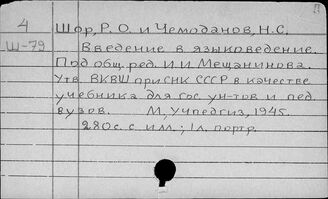 4 Шор, Р. О. и Чемоданов, Н. С.
Ш-79 Введение в языковедение.
Под общ. ред. И. И. Мещанинова.
Утв. ВКВШ при СНК СССР в качестве
учебника для гос. ун-тов и пед.
вузов. М, Учпедгиз, 1945.
280 с. с илл.; 1 л. портр.